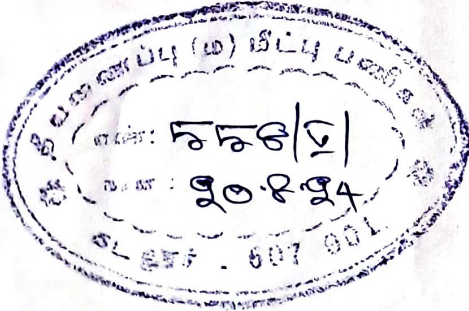 தீயணைப்பு (ம) மீட்பு பணிகள்
எண்:
நாள் : 20.8.24
கடலூர் . 607 001.